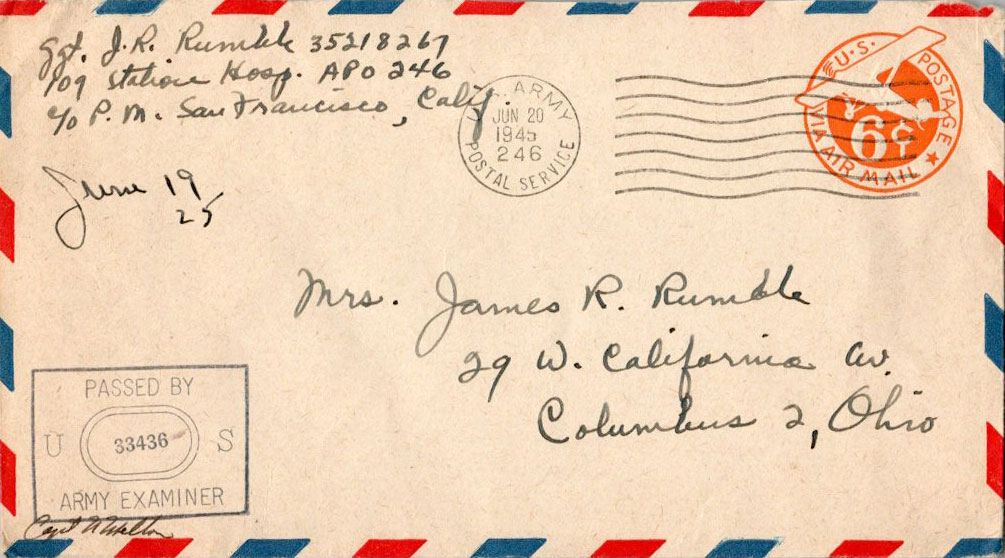 Sgt. J.R. Rumble 35218267
109 Station Hosp. APO 246
c/o P.M. San Francisco, Calif.
U.S. ARMY
JUN 20
1945
246
POSTAL SERVICE
U.S. POSTAGE
6¢
VIA AIR MAIL
June 19
25
Mrs. James R. Rumble
29 W. California Av.
Columbus 2, Ohio
PASSED BY
U 33436 S
ARMY EXAMINER
Capt